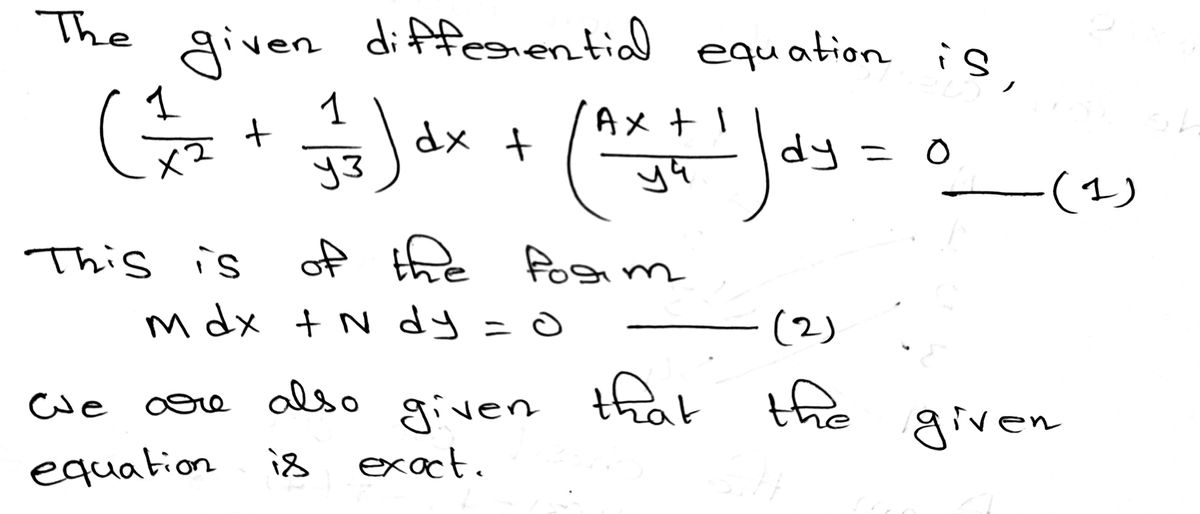 The given differential equation is,
(1/x² + 1/y³) dx + (Ax + 1 / y⁴) dy = 0 —(1)
This is of the form
M dx + N dy = 0 —(2)
we are also given that the given
equation is exact.